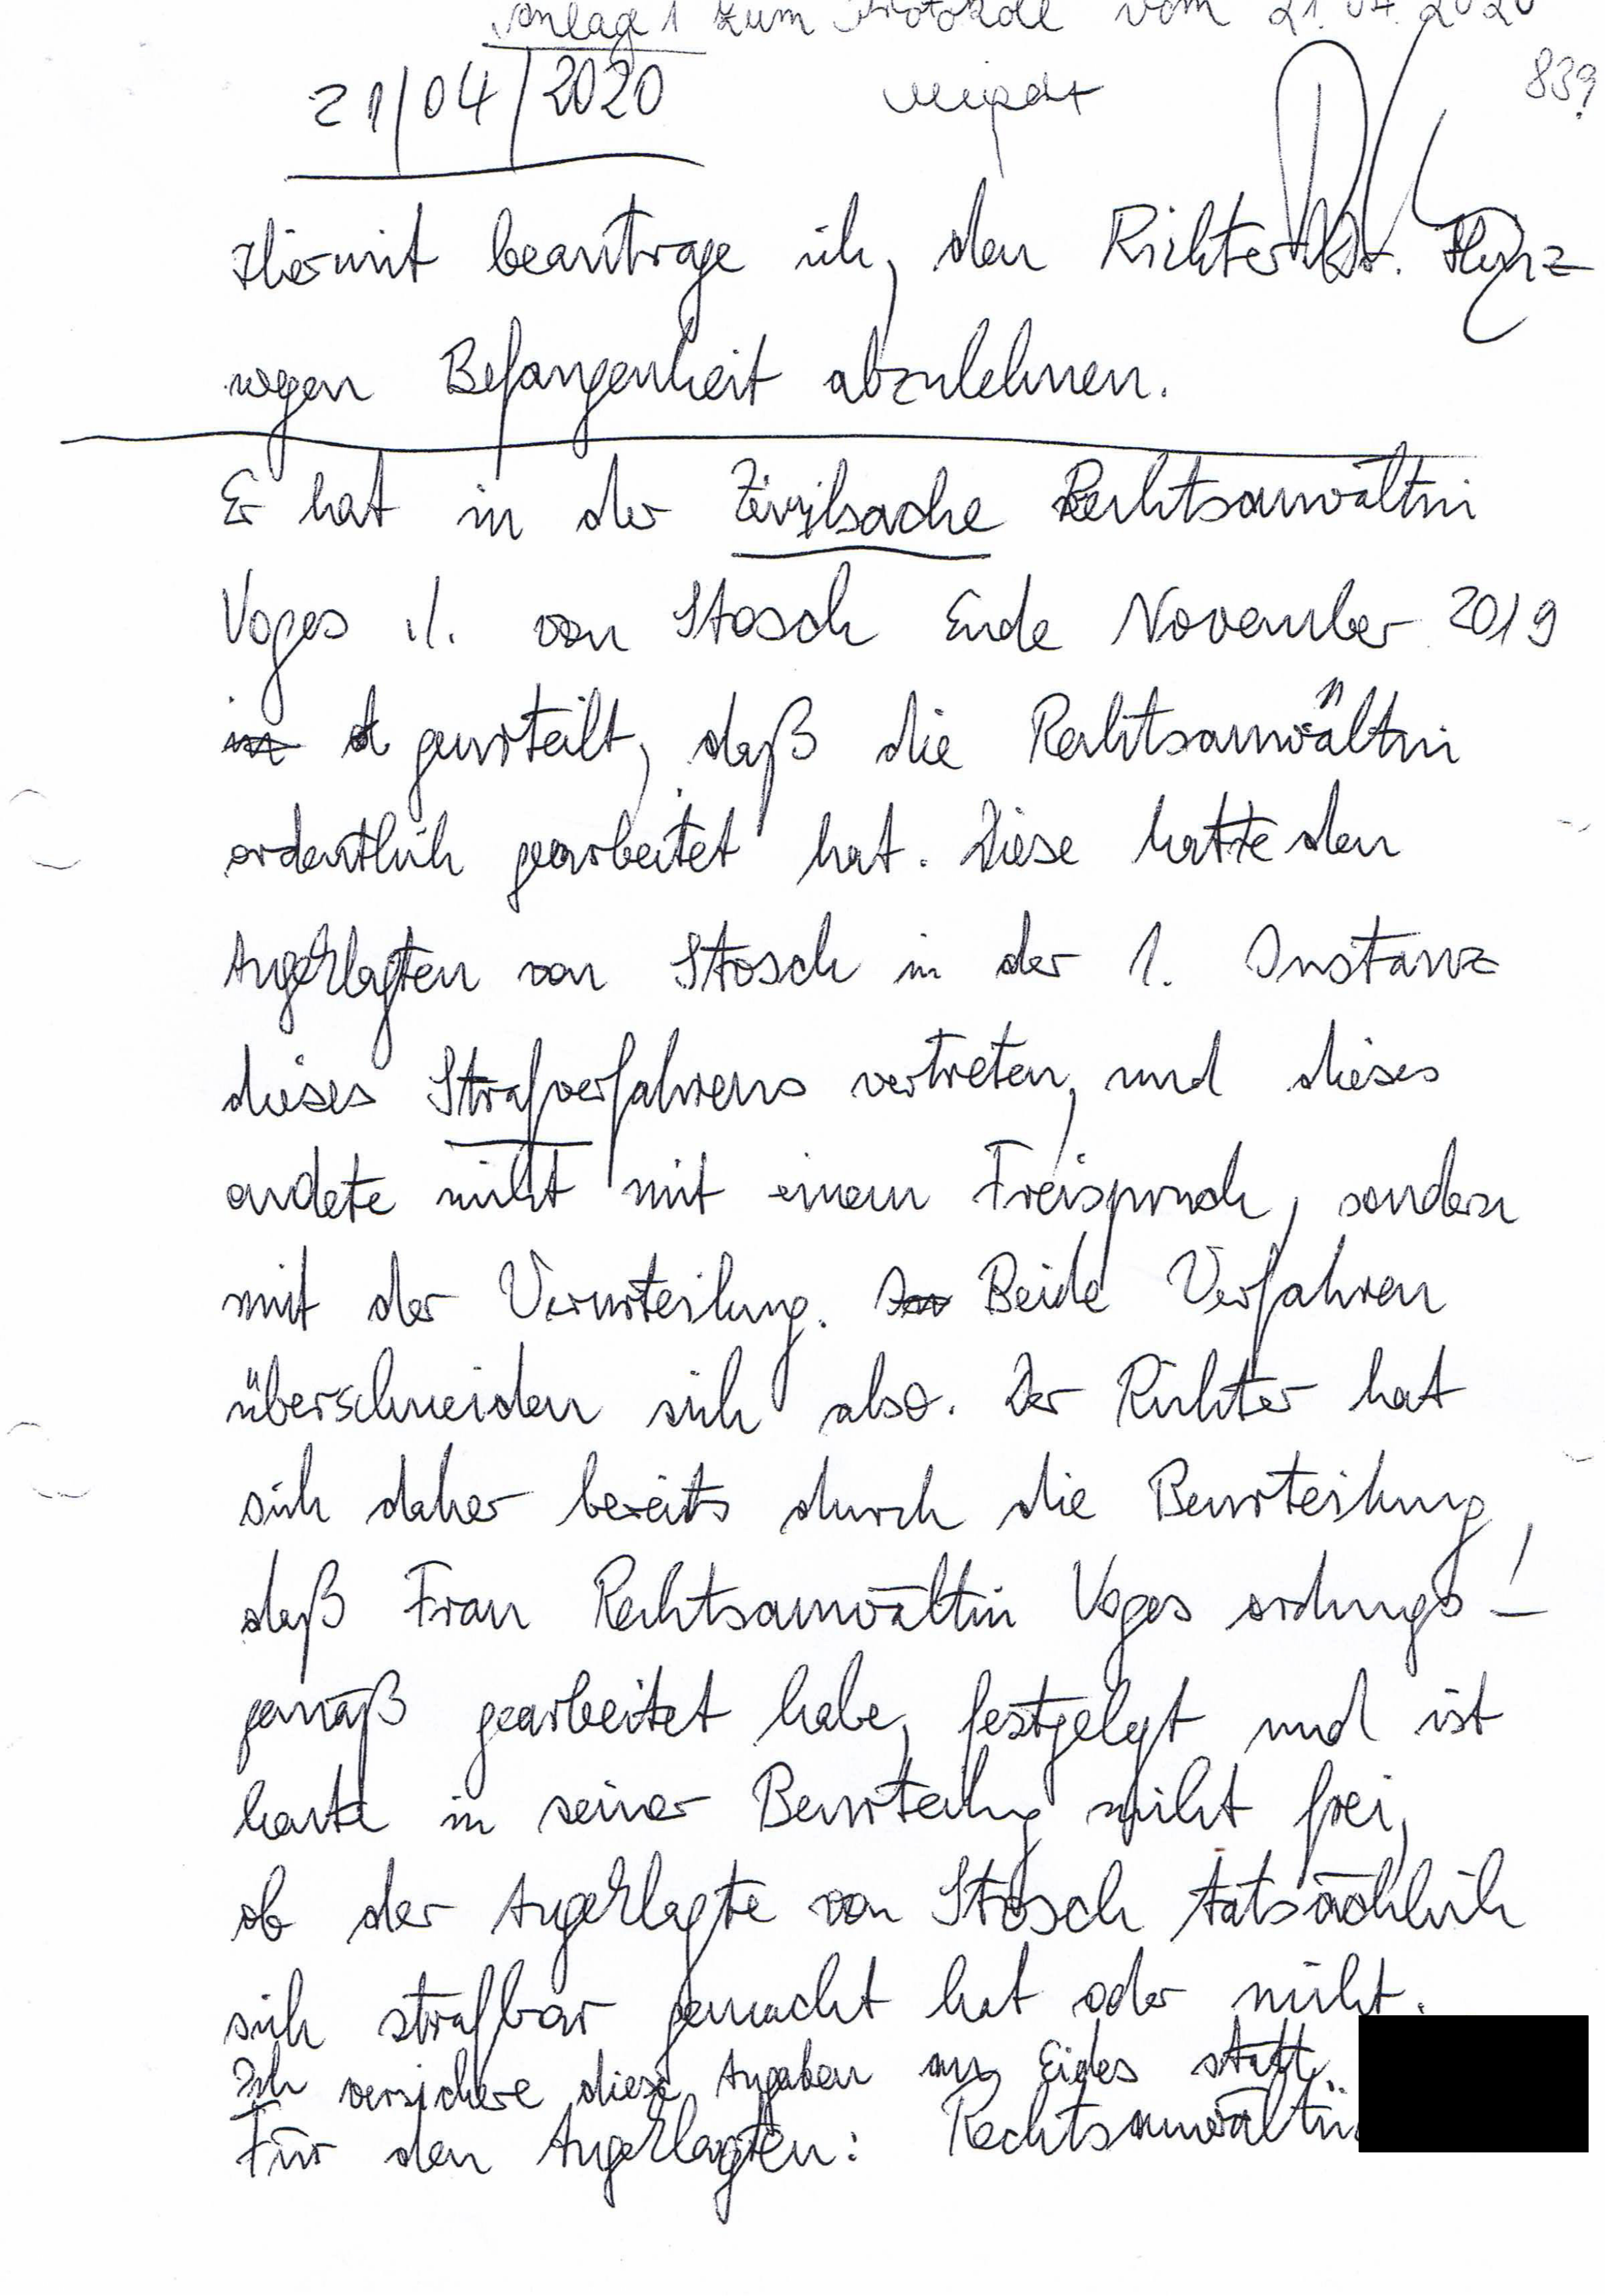 Anlage 1 zum Protokoll vom 21.04.2020
839
21/04/2020
Hiermit beantrage ich, den Richter Dr.
wegen Befangenheit abzulehnen.
Er hat in der Zivilsache Rechtsanwältin
Voges ./. von Stosch Ende November 2019
geurteilt, daß die Rechtsanwältin
ordentlich gearbeitet hat. Diese hatte den
Angeklagten von Stosch in der 1. Instanz
dieses Strafverfahrens vertreten, und dieses
endete nicht mit einem Freispruch, sondern
mit der Verurteilung. Beide Verfahren
überschneiden sich also. Der Richter hat
sich daher bereits durch die Beurteilung,
daß Frau Rechtsanwältin Voges ordnungs-
gemäß gearbeitet habe, festgelegt und ist
heute in seiner Beurteilung nicht frei,
ob der Angeklagte von Stosch tatsächlich
sich strafbar gemacht hat oder nicht.
Ich versichere diese Angaben an Eides statt.
Für den Angeklagten: Rechtsanwältin